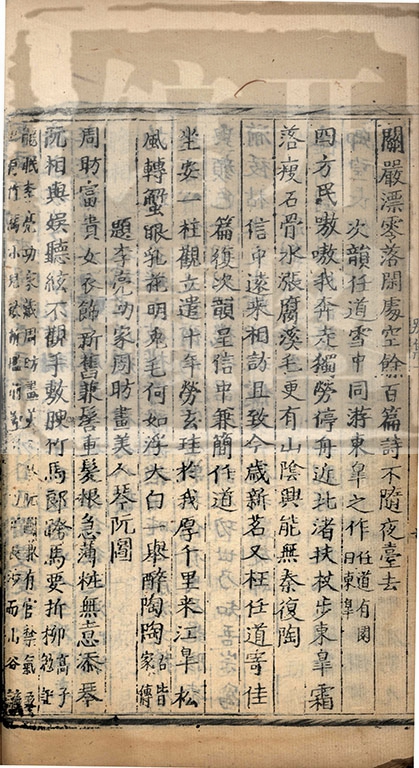 關嚴漂零落閒處空餘百篇詩不隨夜臺去
次韻任道雪中同游東皐之作 任道有閣曰東皐
四方民嗷嗷我奔走獨勞停舟近北渚扶杖步東皐霜
落瘦石骨水漲腐溪毛更有山陰興能無秦復陶
信中遠來相訪且致今歲新茗又枉任道寄佳
篇復次韻呈信中兼簡任道
坐安一柱觀立遣十年勞玄珪於我厚千里来江皐松
風轉蟹眼乳花明兔毛何如浮大白一舉醉陶陶
題李亮功家周昉畫美人琴阮圖
周昉富貴女衣飾新舊兼髻重髮根急薄粧無意添琴
阮相與娛聽絃不觀手敷腴竹馬郎跨馬要折柳